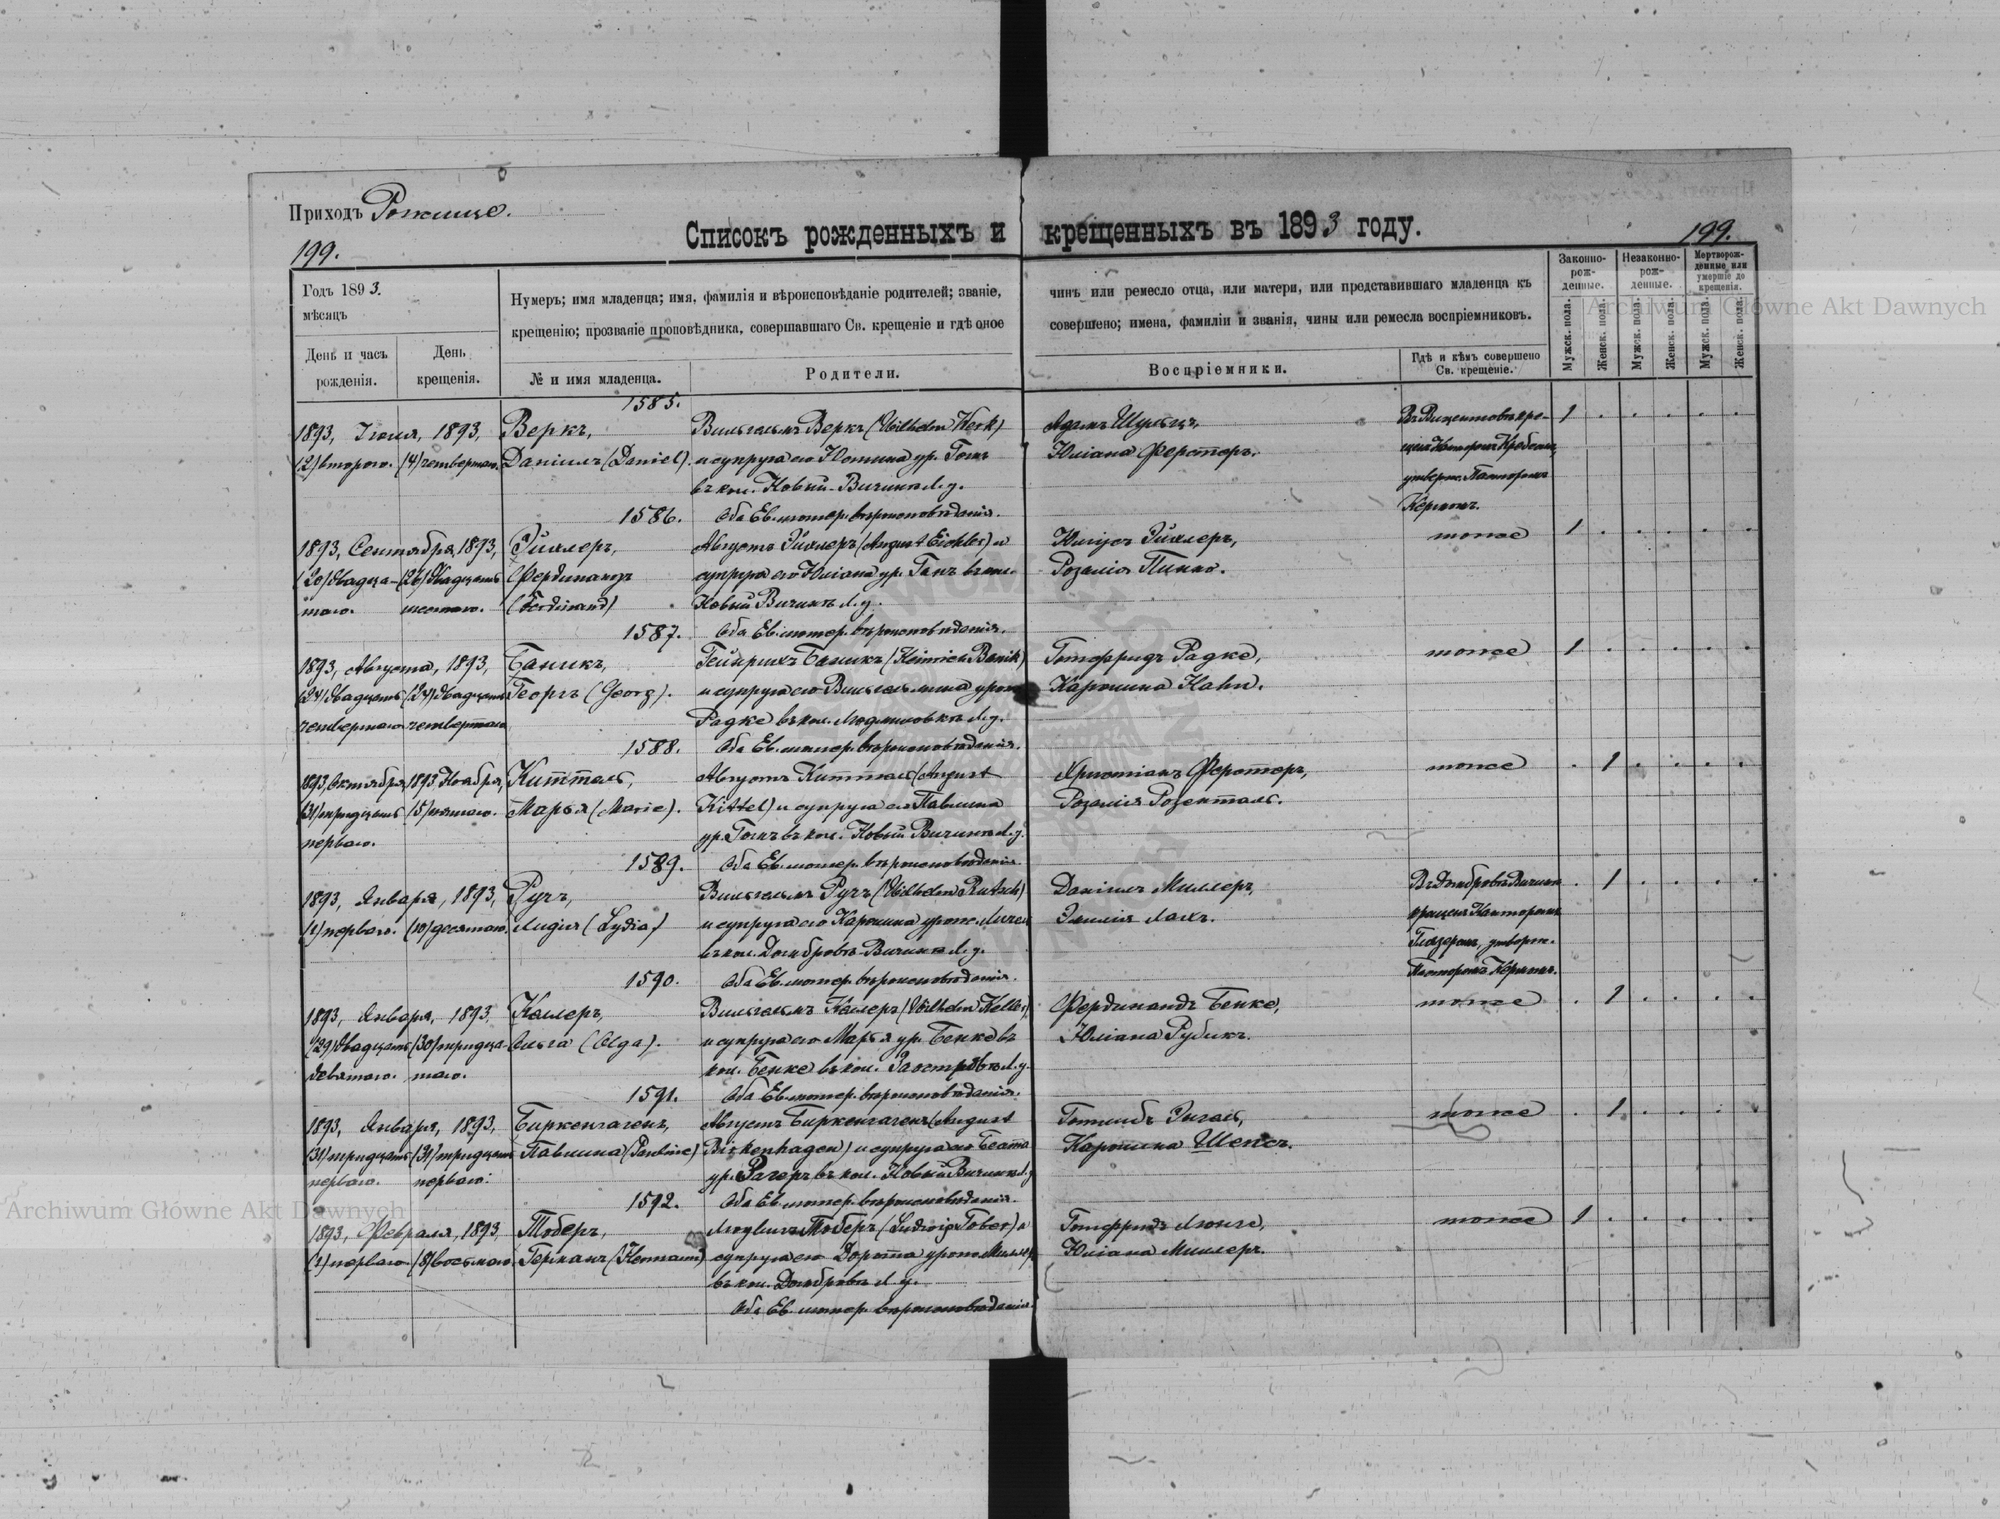 Приходъ Рожище.
Списокъ рожденныхъ и крещенныхъ въ 1893 году.
199.
199.
Годъ 1893.
мѣсяцъ
День и часъ рожденія.
День крещенія.
Нумеръ; имя младенца; имя, фамилія и вѣроисповѣданіе родителей; званіе, чинъ или ремесло отца, или матери, или представившаго младенца къ
крещенію; прозваніе проповѣдника, совершавшаго Св. крещеніе и гдѣ оное совершено; имена, фамиліи и званія, чины или ремесла воспріемниковъ.
№ и имя младенца.
Родители.
Воспріемники.
Гдѣ и кѣмъ совершено
Св. крещеніе.
Законно-
рож-
денные.
Незаконно-
рож-
денные.
Мертворож-
денные или
умершіе до
крещенія.
Мужск. пола.
Женск. пола.
Мужск. пола.
Женск. пола.
Мужск. пола.
Женск. пола.
1585.
1893, Іюля, 1893, Веркъ, Вильгельмъ Веркъ (Wilhelm Werk) Адамъ Шульцъ, 1
(2) второго. (4) четвертаго. Даніилъ (Daniel). и супруга его Юлiана Ферстеръ.
въ кол. Новый-Вичинъ Л. у.
Керномъ.
1586. Оба Ев. лютер. вѣроисповѣданія.
1893, Сентября, 1893, Эйхлеръ, Августъ Эйхлеръ (August Eichler) и Юліусъ Эйхлеръ, тоже 1
(20) двадца- (26) двадцать Фердинандъ супруга его Юліана ур. въ кол. Розалія
таго. шестого. (Ferdinand) Новый Вичинъ Л. у.
1587. Оба Ев. лютер. вѣроисповѣданія.
1893, Августа, 1893, Баникъ, Гейнрихъ Баникъ (Heinrich Banik) Готфридъ Радке, тоже 1
(24) двадцать (24) двадцать Георгъ (Georg). и супруга его Вильгельмина урож. Каролина Hahn.
четвертаго четвертаго Радке въ кол. Людмиловкѣ Л. у.
1588. Оба Ев. лютер. вѣроисповѣданія.
1893, Октября, 1893, Ноября, Киттель, Августъ Киттель (August Христіанъ Ферстеръ, тоже 1
(31) тридцать (5) пятаго. Марья (Marie). Kittel) и супруга его Павлина Розалія Розенталь.
перваго. ур. въ кол. Новый Вичинъ Л. у.
1589. Оба Ев. лютер. вѣроисповѣданія.
1893, Января, 1893, Ручъ, Вильгельмъ Ручъ (Wilhelm Rutsch) Даніилъ Миллеръ, 1
(1) перваго. (10) десятаго. Лидія (Lydia) и супруга его Каролина урож. Эмилія Лахъ.
въ кол. Домброва-Вичинъ Л. у.
Пасторомъ Керномъ.
1590. Оба Ев. лютер. вѣроисповѣданія.
1893, Января, 1893, Келлеръ, Вильгельмъ Келлеръ (Wilhelm Keller) Фердинандъ Бенке, тоже 1
(29) двадцать (30) тридца- Ольга (Olga). и супруга его Марья ур. Бенке въ Юліана Рубикъ.
девятаго. таго. кол. Бенке въ кол. Л. у.
1591. Оба Ев. лютер. вѣроисповѣданія.
1893, Января, 1893, Биркенгагенъ, Августъ Биркенгагенъ (August Готлибъ тоже 1
(31) тридцать (31) тридцать Павлина (Pauline) Birkenhagen) и супруга его Беата Каролина
перваго. перваго. ур. въ кол. Новый Вичинъ Л. у.
1592. Оба Ев. лютер. вѣроисповѣданія.
1893, Февраля, 1893, Тоберъ, Людвигъ Тоберъ (Ludwig Tober) и Готфридъ тоже 1
(1) перваго (8) восьмого. Германъ (Hermann) супруга его Доротта урож. Миллеръ Юліана Миллеръ.
въ кол. Домброва Л. у.
Оба Ев. лютер. вѣроисповѣданія.
Archiwum Główne Akt Dawnych
Archiwum Główne Akt Dawnych